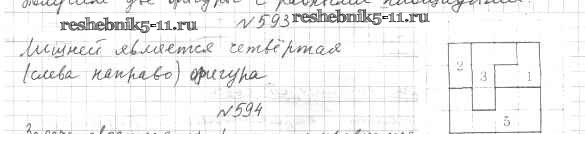 две фигуры с равными площадями.
reshebnik5-11.ru
№593
reshebnik5-11.ru
Лишней является четвёртая
(слева направо) фигура.
2
3
1
5
№594